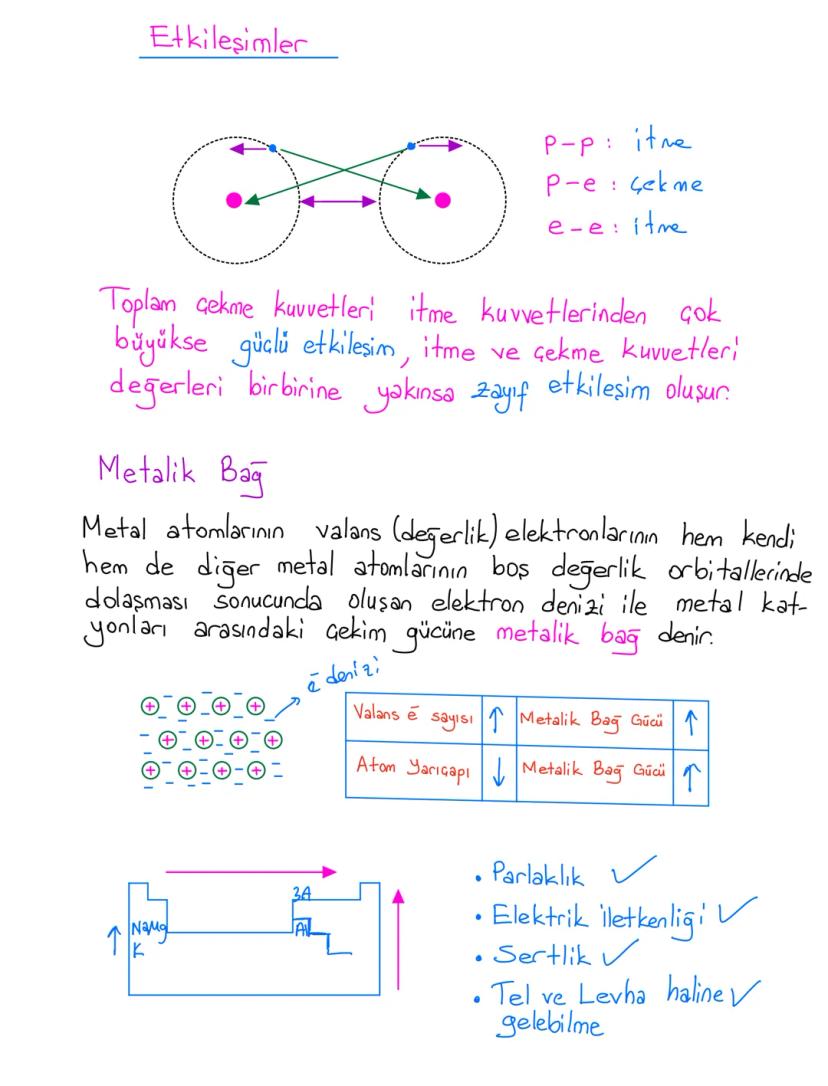 Etkileşimler
p-p: itme
p-e: çekme
e-e: itme
Toplam çekme kuvvetleri itme kuvvetlerinden çok
büyükse güçlü etkileşim, itme ve çekme kuvvetleri
değerleri birbirine yakınsa zayıf etkileşim oluşur.
Metalik Bağ
Metal atomlarının valans (değerlik) elektronlarının hem kendi
hem de diğer metal atomlarının boş değerlik orbitallerinde
dolaşması sonucunda oluşan elektron denizi ile metal kat-
yonları arasındaki çekim gücüne metalik bağ denir.
ē denizi
Valans ē sayısı ↑ Metalik Bağ Gücü ↑
Atom Yarıçapı ↓ Metalik Bağ Gücü ↑
3A
Na Mg Al
K
• Parlaklık ✓
• Elektrik iletkenliği ✓
• Sertlik ✓
• Tel ve Levha haline ✓
gelebilme